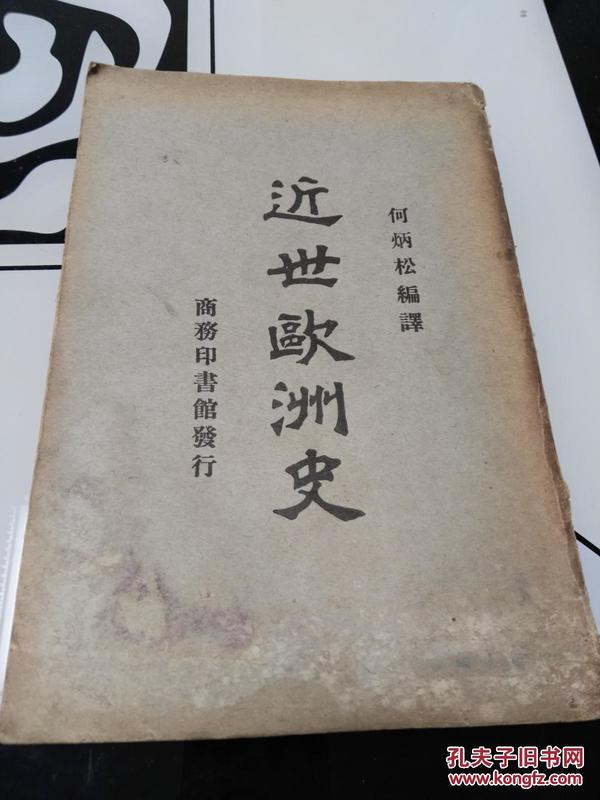 何炳松編譯
近世歐洲史
商務印書館發行
孔夫子旧书网
www.kongfz.com